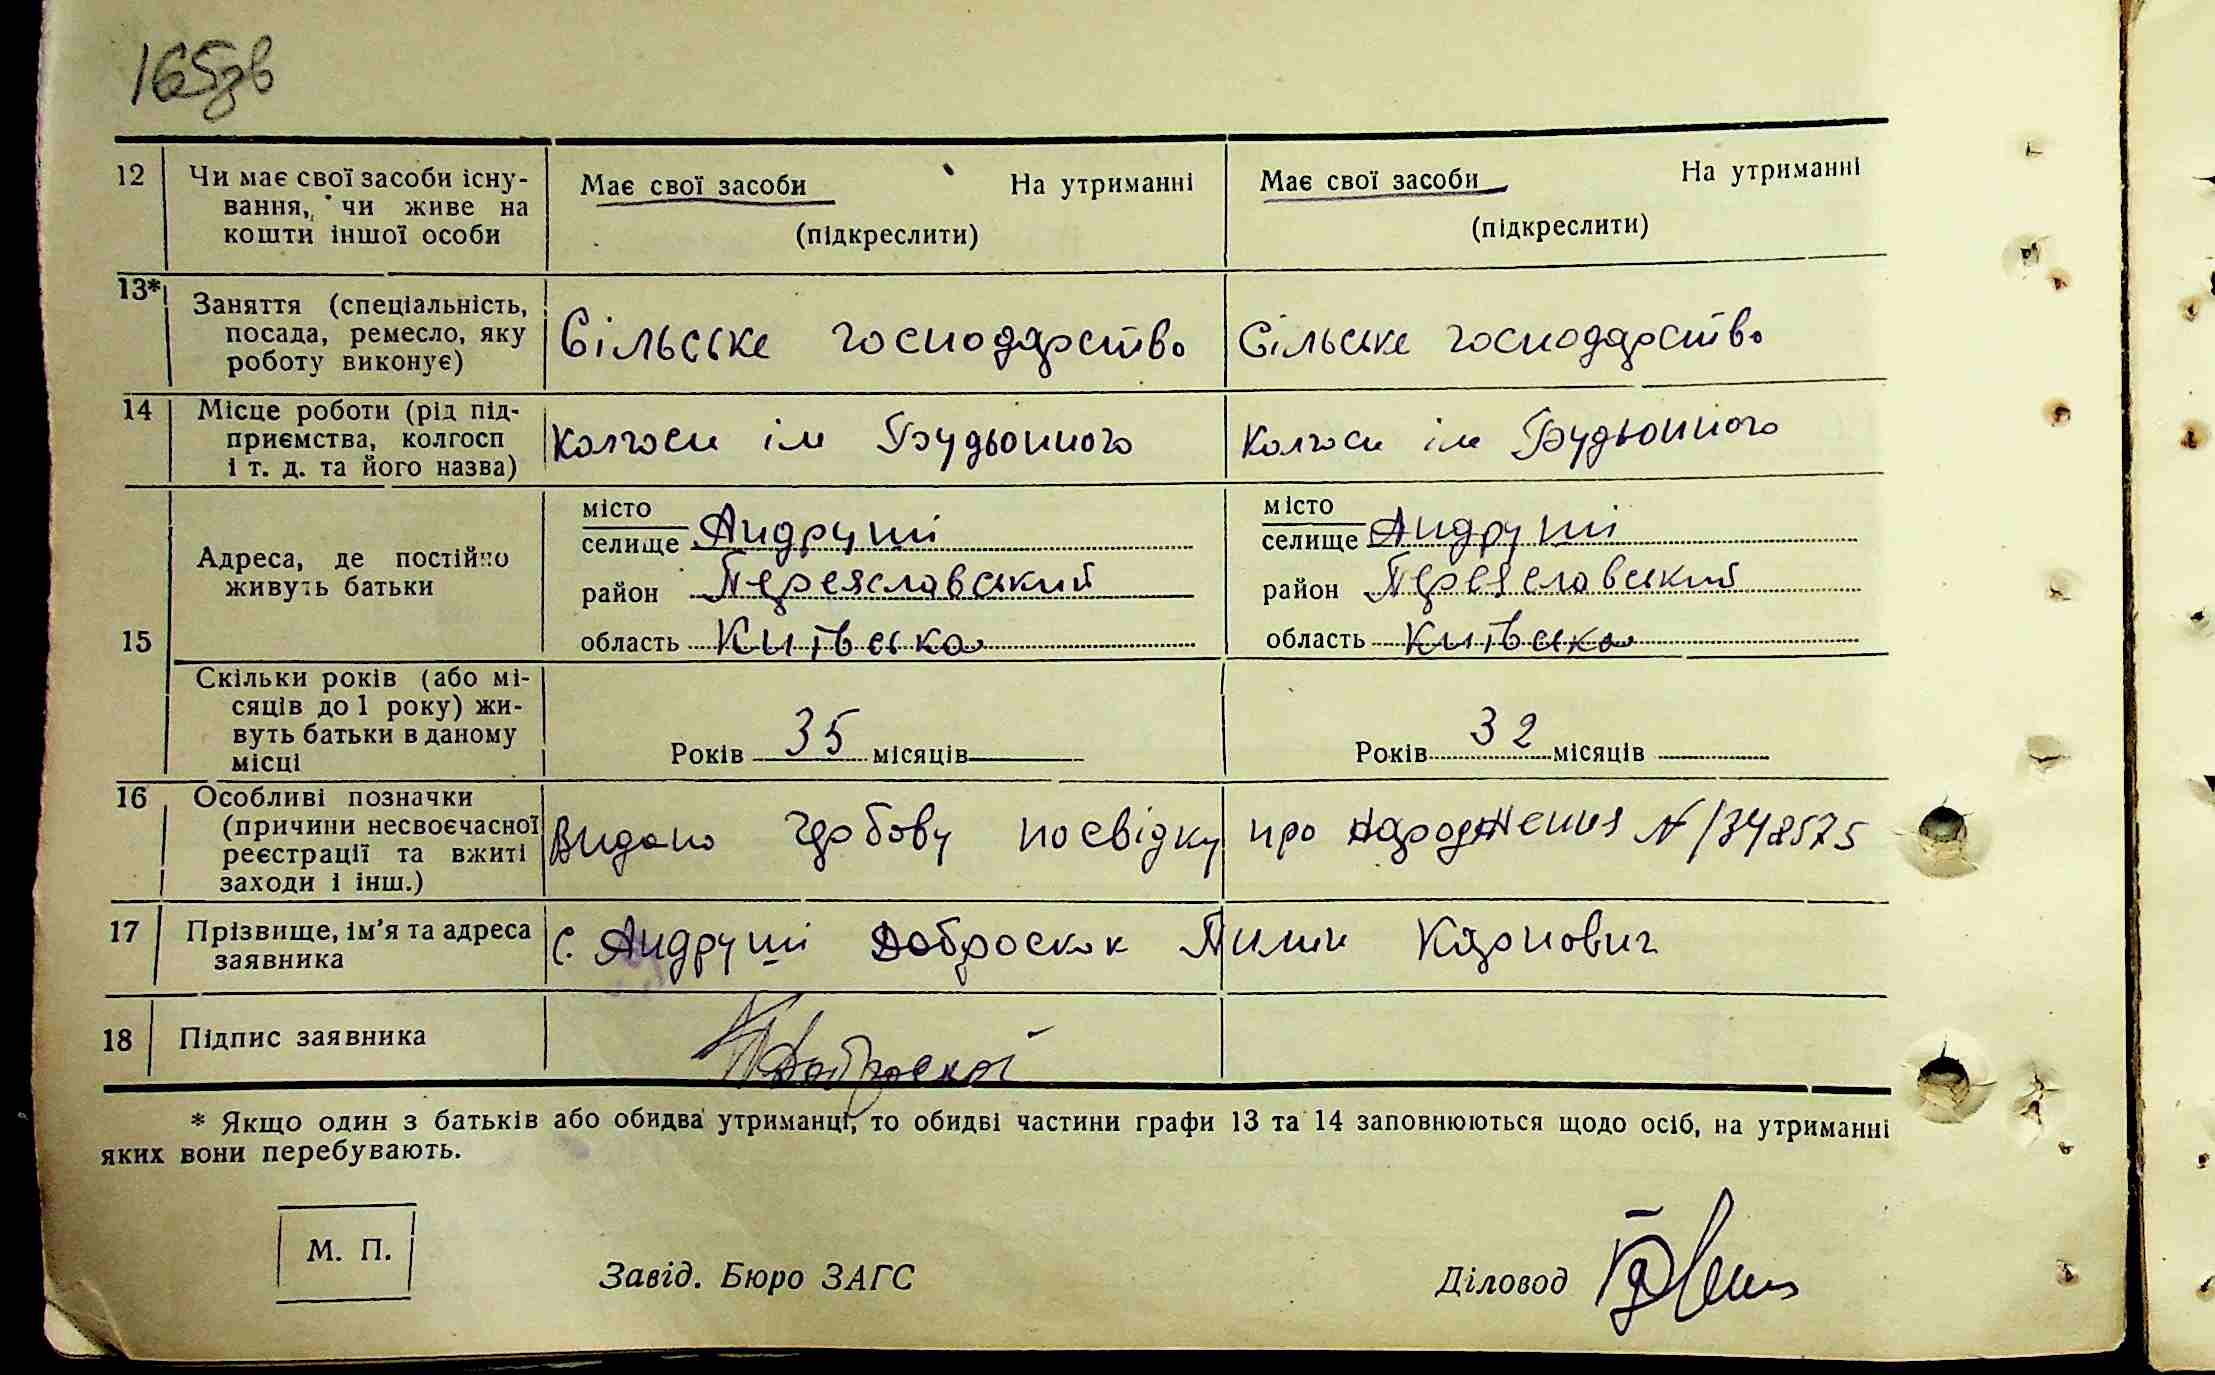 165зв
12 Чи має свої засоби існу- Має свої засоби На утриманні Має свої засоби На утриманні
вання, чи живе на
кошти іншої особи (підкреслити) (підкреслити)
13* Заняття (спеціальність,
посада, ремесло, яку Сільське господарство Сільське господарство
роботу виконує)
14 Місце роботи (рід під-
приємства, колгосп Колгосп ім Будьонного Колгосп ім Будьонного
і т. д. та його назва)
місто місто
селище Андруші селище Андруші
Адреса, де постійно
живуть батьки район Переяславський район Переяславський
15 область Київська область Київська
Скільки років (або мі-
сяців до 1 року) жи-
вуть батьки в даному
місці Років 35 місяців Років 32 місяців
16 Особливі позначки
(причини несвоєчасної
реєстрації та вжиті Видано гербову посвідку про народження № 1348575
заходи і інш.)
17 Прізвище, ім'я та адреса с. Андруші Доброскок Пилип Карпович
заявника
18 Підпис заявника
* Якщо один з батьків або обидва утриманці, то обидві частини графи 13 та 14 заповнюються щодо осіб, на утриманні
яких вони перебувають.
М. П.
Завід. Бюро ЗАГС Діловод